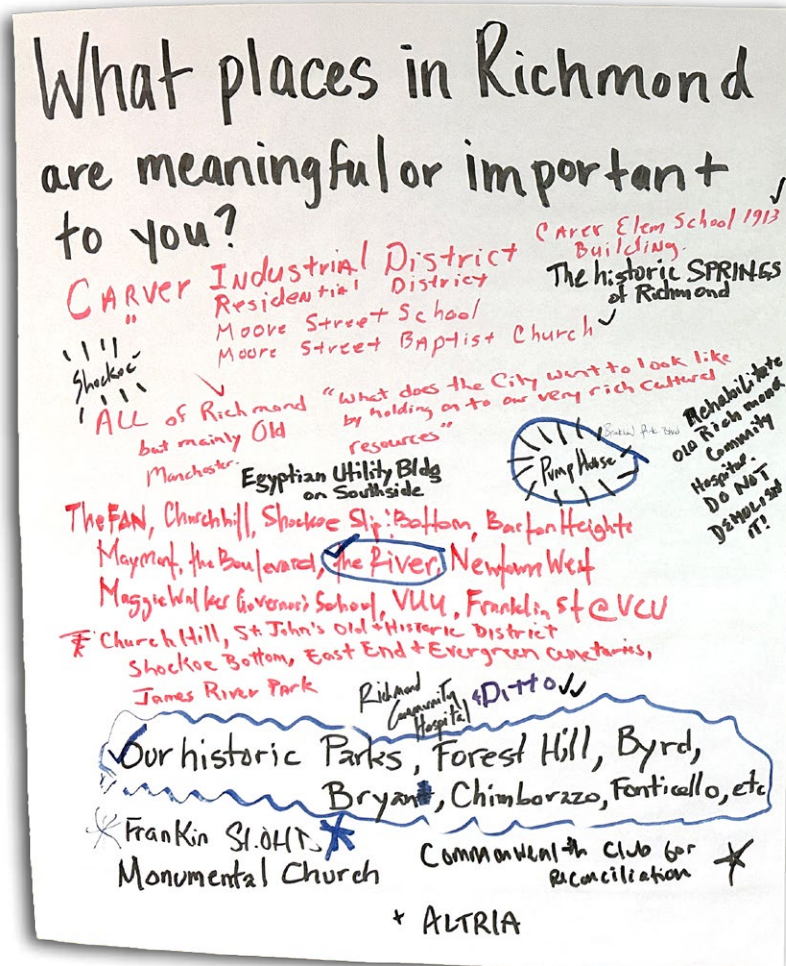 What places in Richmond
are meaningful or important
to you?
Carer Elem School 1913
Building.
The historic SPRINGS
of Richmond
CARVER Industrial District
" Residential District
Moore Street School
Moore Street Baptist Church
Shockoe
ALL of Richmond
but mainly Old
Manchester.
"What does the City want to look like
by holding on to our very rich cultural
resources"
Egyptian Utility Bldg
on Southside
Pump House
Rehabilitate
Old Richmond
Community
Hospital.
DO NOT
DEMOLISH
IT!
The FAN, Churchhill, Shockoe Slip: Bottom, Barton Heights
Maymont, the Boulevard, the River, Newtown West
Maggie Walker Governor's School, VUU, Franklin St @ VCU
Church Hill, St. John's Old + Historic District
Shockoe Bottom, East End + Evergreen cemetaries,
James River Park
Richmond
Community
Hospital
Ditto
Our historic Parks, Forest Hill, Byrd,
Bryan, Chimborazo, Fonticello, etc
Frankin St.
Monumental Church
Commonwealth Club for
Reconciliation
+ ALTRIA